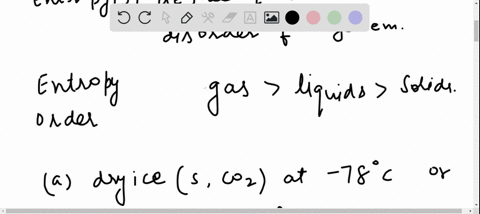 disorder of
Entropy gas > liquids > solids.
order
(a) dry ice (s, CO2) at -78°C or